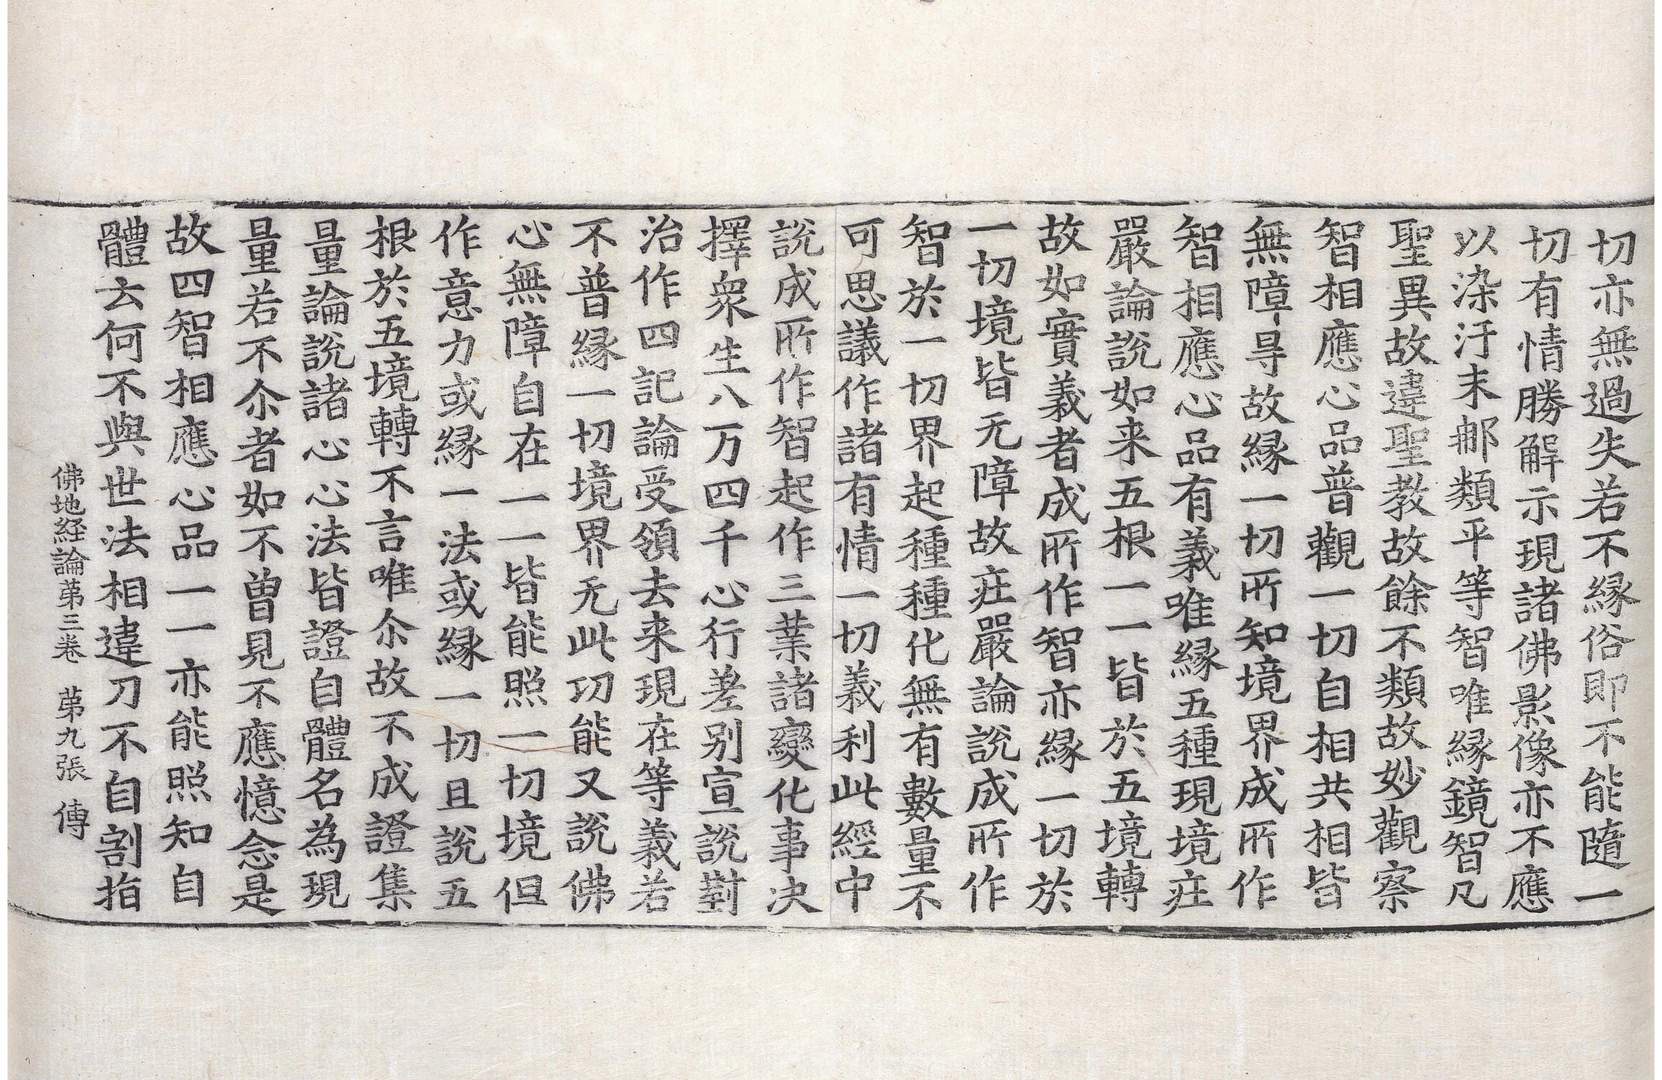 切亦無過失若不縁俗即不能隨一
切有情勝解示現諸佛影像亦不應
以染汙末那類平等智唯縁鏡智凡
聖異故違聖教故餘不類故妙觀察
智相應心品普觀一切自相共相皆
無障㝵故縁一切所知境界成所作
智相應心品有義唯縁五種現境莊
嚴論說如来五根一一皆於五境轉
故如實義者成所作智亦縁一切於
一切境皆无障故莊嚴論說成所作
智於一切界起種種化無有數量不
可思議作諸有情一切義利此經中
說成所作智起作三業諸變化事决
擇衆生八万四千心行差别宣說對
治作四記論受領去来現在等義若
不普縁一切境界无此功能又說佛
心無障自在一一皆能照一切境但
作意力或縁一法或縁一切且說五
根於五境轉不言唯尒故不成證集
量論說諸心心法皆證自體名為現
量若不尒者如不曾見不應憶念是
故四智相應心品一一亦能照知自
體云何不與世法相違刀不自割指
佛地経論苐三卷 苐九張 傳